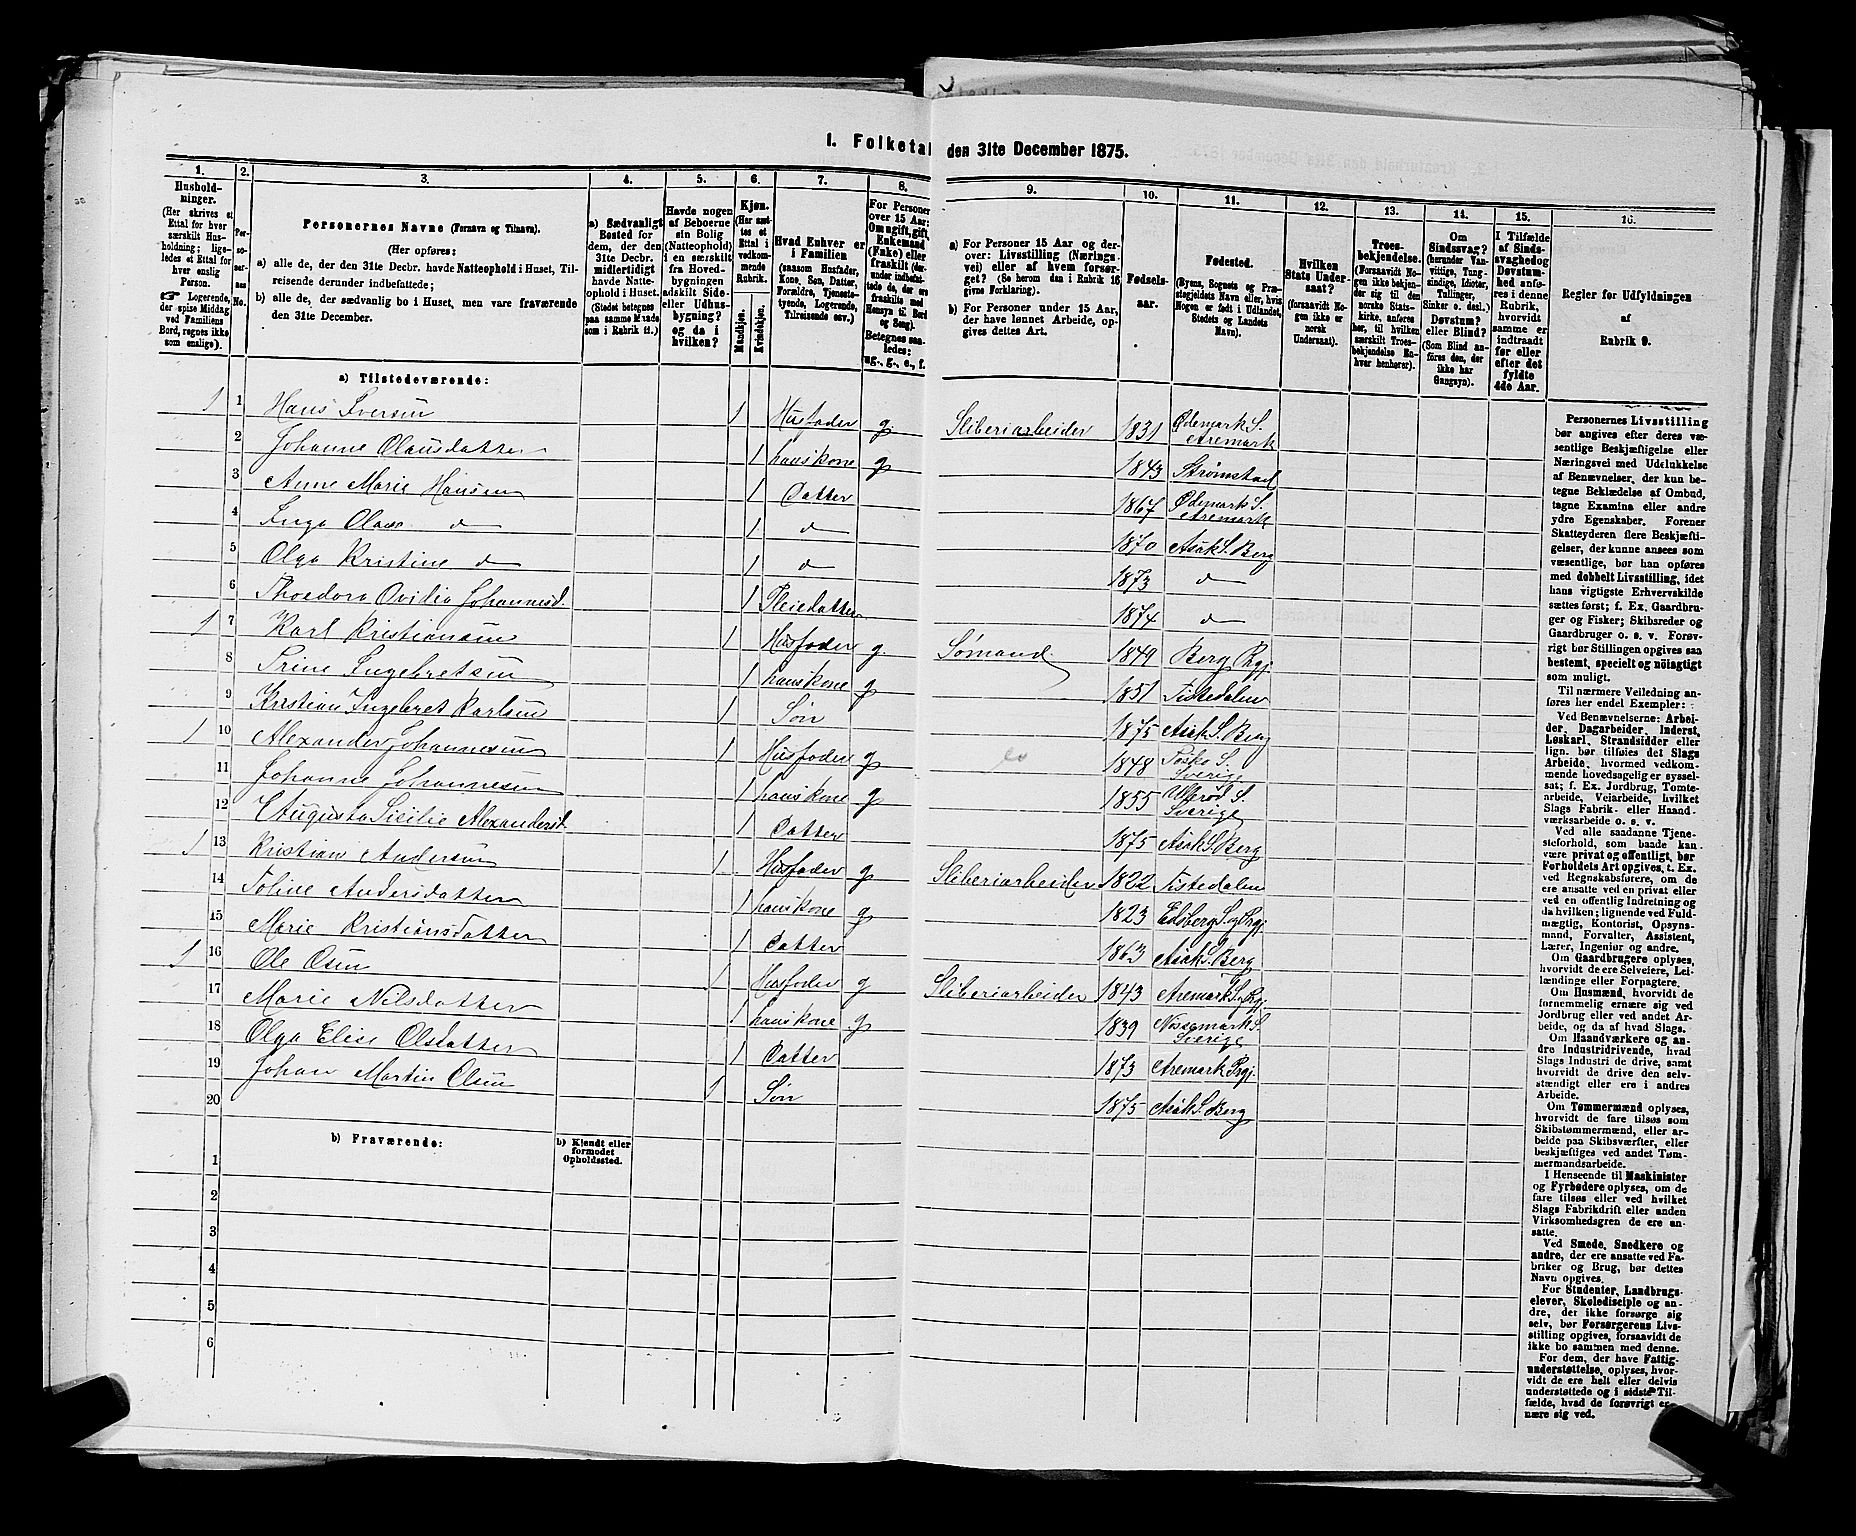 1. Folketal
den 31te December 1875.
1.
Hushold-
ninger.
(Her skrives et
Ettal for hver
særskilt Hus-
holdning; lige-
ledes et Ettal for
hver enslig
Person.
☞ Logerende,
der spise Middag
ved Familiens
Bord, regnes ikke
som enslige).
2.
3.
Personernes Navne (Fornavn og Tilnavn).
(Her opføres:
a) alle de, der den 31te Decbr. havde Natteophold i Huset, Til-
reisende derunder indbefattede;
b) alle de, der sædvanlig bo i Huset, men vare fraværende
den 31te December.
4.
a) Sædvanligt
Bosted for
dem, der den
31te Decbr.
midlertidigt
havde Natte-
ophold i Huset.
(Stedet betegnes
paa samme Maade
som i Rubrik 11.)
5.
Havde nogen
af Beboerne
sin Bolig
(Natteophold)
i en særskilt
fra Hoved-
bygningen
adskilt Side-
eller Udhus-
bygning?
og da i
hvilken?
6.
Kjøn.
(Her sæt-
tes et
Ettal i
vedkom-
mende
Rubrik.
Mandkjøn.
Kvindekjøn.
7.
Hvad Enhver er
i Familien
(saasom Husfader,
Kone, Søn, Datter,
Forældre, Tjeneste-
tyende, Logerende,
Tilreisende osv.)
8.
For Personer
over 15 Aar:
Om ugift, gift,
Enkemand
(Enke) eller
fraskilt (der-
under indbefat-
tede de, der ere
fraskilte med
Hensyn til Bord
og Seng).
Betegnes saa-
ledes:
ug., g., e., f.
9.
a) For Personer 15 Aar og der-
over: Livsstilling (Nærings-
vei) eller af hvem forsør-
get? (Se herom den i Rubrik 16
givne Forklaring).
b) For Personer under 15 Aar,
der have lønnet Arbeide, op-
gives dettes Art.
10.
Fødsels-
aar.
11.
Fødested.
(Byens, Sognets og Præ-
stegjeldets Navn eller, hvis
Nogen er født i Udlandet,
Stedets og Landets
Navn).
12.
Hvilken
Stats Under-
saat?
(forsaavidt No-
gen ikke er
norsk
Undersaat).
13.
Troes-
bekjendelse.
(Forsaavidt No-
gen ikke bekjen-
der sig til den
norske Stats-
kirke, anføres
her, til hvilken
særskilt Troes-
bekjendelse En-
hver henhører).
14.
Om
Sindssvag?
(herunder Van-
vittige, Tung-
sindige, Idioter,
Tullinger,
Sinker o. desl.)
Døvstum?
eller Blind?
(Som Blind an-
føres den, der
ikke har
Gangsyn).
15.
I Tilfælde
af Sinds-
svaghed og
Døvstum-
hed anfø-
res i denne
Rubrik,
hvorvidt
samme er
indtraadt
før eller
efter det
fyldte
4de Aar.
16.
Regler for Udfyldningen
af
Rubrik 9.
a) Tilstedeværende:
1 1 Hans Iversen 1 Husfader g Sliberiarbeider 1831 Ødemark S. Aremark
2 Johanne Olausdatter 1 hans kone g 1843 Strømstad
3 Anne Marie Hansen 1 Datter 1867 Ødemark S. Aremark
4 Inga Olava d 1 d 1870 Asak S. Berg
5 Olga Kristine d 1 d 1873 d
6 Thoedora Ovidia Johannesd. 1 Pleiedatter 1874 d
1 7 Karl Kristiansen 1 Husfader g. Sømand 1849 Berg Prgj.
8 Trine Ingebretsen 1 hans kone g 1851 Tistedalen
9 Kristian Ingebret Karlsen 1 Søn 1875 Asak S. Berg
1 10 Alexander Johannesen 1 Husfader g 1848 Sverige
11 Johanne Johannesen 1 hans kone g 1855 Sverige
12 Augusta Sicilie Alexandersd. 1 Datter 1875 Asak S. Berg
1 13 Kristian Andersen 1 Husfader g Sliberiarbeider 1822 Tistedalen
14 Toline Andersdatter 1 hans kone g 1823 Edsberg S. og Prgj.
15 Marie Kristiansdatter 1 Datter 1863 Asak S. Berg
1 16 Ole Osen 1 Husfader g Sliberiarbeider 1843 Aremark S. og Prgj.
17 Marie Nilsdatter 1 hans kone g 1839 Nössemark S. Sverige
18 Olga Elise Olsdatter 1 Datter 1873 Aremark Prgj.
19 Johan Martin Olsen 1 Søn 1875 Asak S. Berg
20
b) Fraværende:
b) Kjendt eller
formodet
Opholdssted.
1
2
3
4
5
6
Personernes Livsstilling
bør angives efter deres væ-
sentlige Beskjæftigelse eller
Næringsvei med Udelukkelse
af Benævnelser, der kun be-
tegne Beklædelse af Ombud,
tagne Examina eller andre
ydre Egenskaber. Forener
Skatteyderen flere Beskjæfti-
gelser, der kunne ansees som
væsentlige, bør han opføres
med dobbelt Livsstilling, idet
hans vigtigste Erhvervskilde
sættes først; f. Ex. Gaardbru-
ger og Fisker; Skibsreder og
Gaardbruger o. s. v. Forøv-
rigt bør Stillingen opgives saa
bestemt, specielt og nöiagtigt
som muligt.
Til nærmere Veiledning an-
føres her endel Exempler:
Ved Benævnelserne: Arbei-
der, Dagarbeider, Inderst,
Løskarl, Strandsidder eller
lign. bør tilføies det Slags
Arbeide, hvormed vedkom-
mende hovedsagelig er syssel-
sat; f. Ex. Jordbrug, Tomte-
arbeide, Veiarbeide, hvilket
Slags Fabrik- eller Haand-
værksarbeide o. s. v.
Ved alle saadanne Tjene-
steforhold, som baade kan
være privat og offentligt, bør
Forholdets Art opgives, t. Ex.
ved Regnskabsførere, om de
ere ansatte ved en privat eller
ved en offentlig Indretning og
da hvilken; lignende ved Fuld-
mægtig, Kontorist, Opsyns-
mand, Forvalter, Assistent,
Lærer, Ingeniør og andre.
Om Gaardbrugere oplyses,
hvorvidt de ere Selveiere, Lei-
lændinge eller Forpagtere.
Om Husmænd, hvorvidt de
fornemmelig ernære sig ved
Jordbrug eller ved andet Ar-
beide, og da af hvad Slags.
Om Haandværkere og an-
dre Industridrivende, hvad
Slags Industri de drive, samt
hvorvidt de drive den selv-
stændigt eller ere i andres
Arbeide.
Om Tømmermænd oplyses,
hvorvidt de fare tilsøs som
Skibstømmermænd, eller ar-
beide paa Skibsværfter, eller
beskjæftiges ved andet Tøm-
mermandsarbeide.
I Henseende til Maskinister
og Fyrbødere oplyses, om de
fare tilsøs eller ved hvilket
Slags Fabrikdrift eller anden
Virksomhedsgren de ere an-
satte.
Ved Smede, Snedkere og
andre, der ere ansatte ved Fa-
briker og Brug, bør dettes
Navn opgives.
For Studenter, Landbrugs-
elever, Skoledisciple og an-
dre, der ikke forsørge sig
selv, bør Forsørgerens Livs-
stilling opgives, forsaavidt de
ikke bo sammen med denne.
For dem, der have Fattig-
understøttelse, oplyses, hvor-
vidt de ere helt eller delvis
understøttede og i sidste Til-
fælde, hvad de forøvrigt er-
nære sig ved.